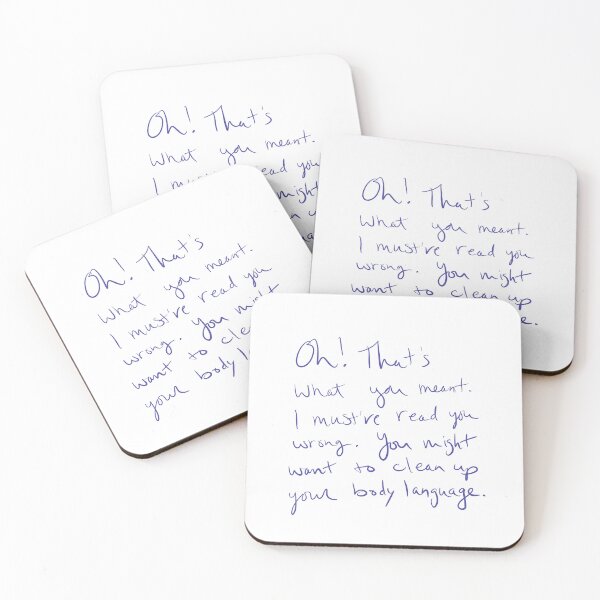 Oh! That's
What you meant.
I you
might
Oh! That's
What you meant.
I must've read you
wrong. You might
want to clean up
Oh! That's
What you meant.
I must've read you
wrong. You might
want to clean
your body
Oh! That's
What you meant.
I must've read you
wrong. You might
want to clean up
your body language.